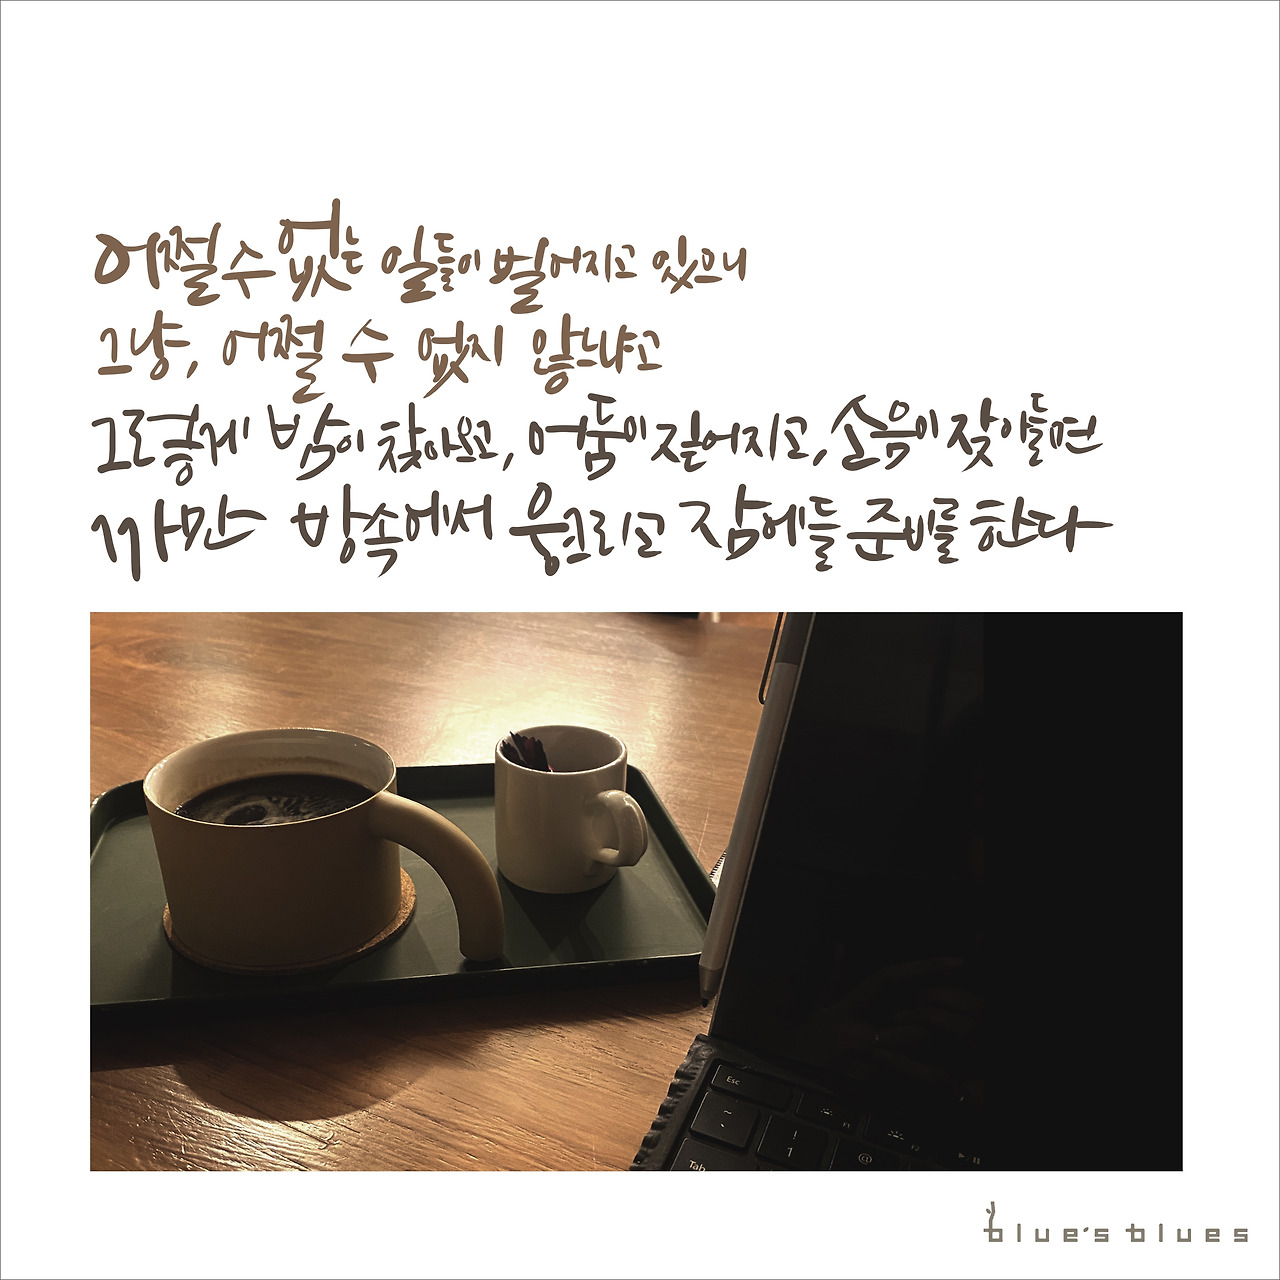 어쩔 수 없는 일들이 벌어지고 있으니
그냥, 어쩔 수 없지 않느냐고
그렇게 밤이 찾아오고, 어둠이 짙어지고, 소음이 잦아들면
까만 방 속에서 웅크리고 잠에 들 준비를 한다
Esc
F1
F2
~
!
1
@
Tab
blue's blues